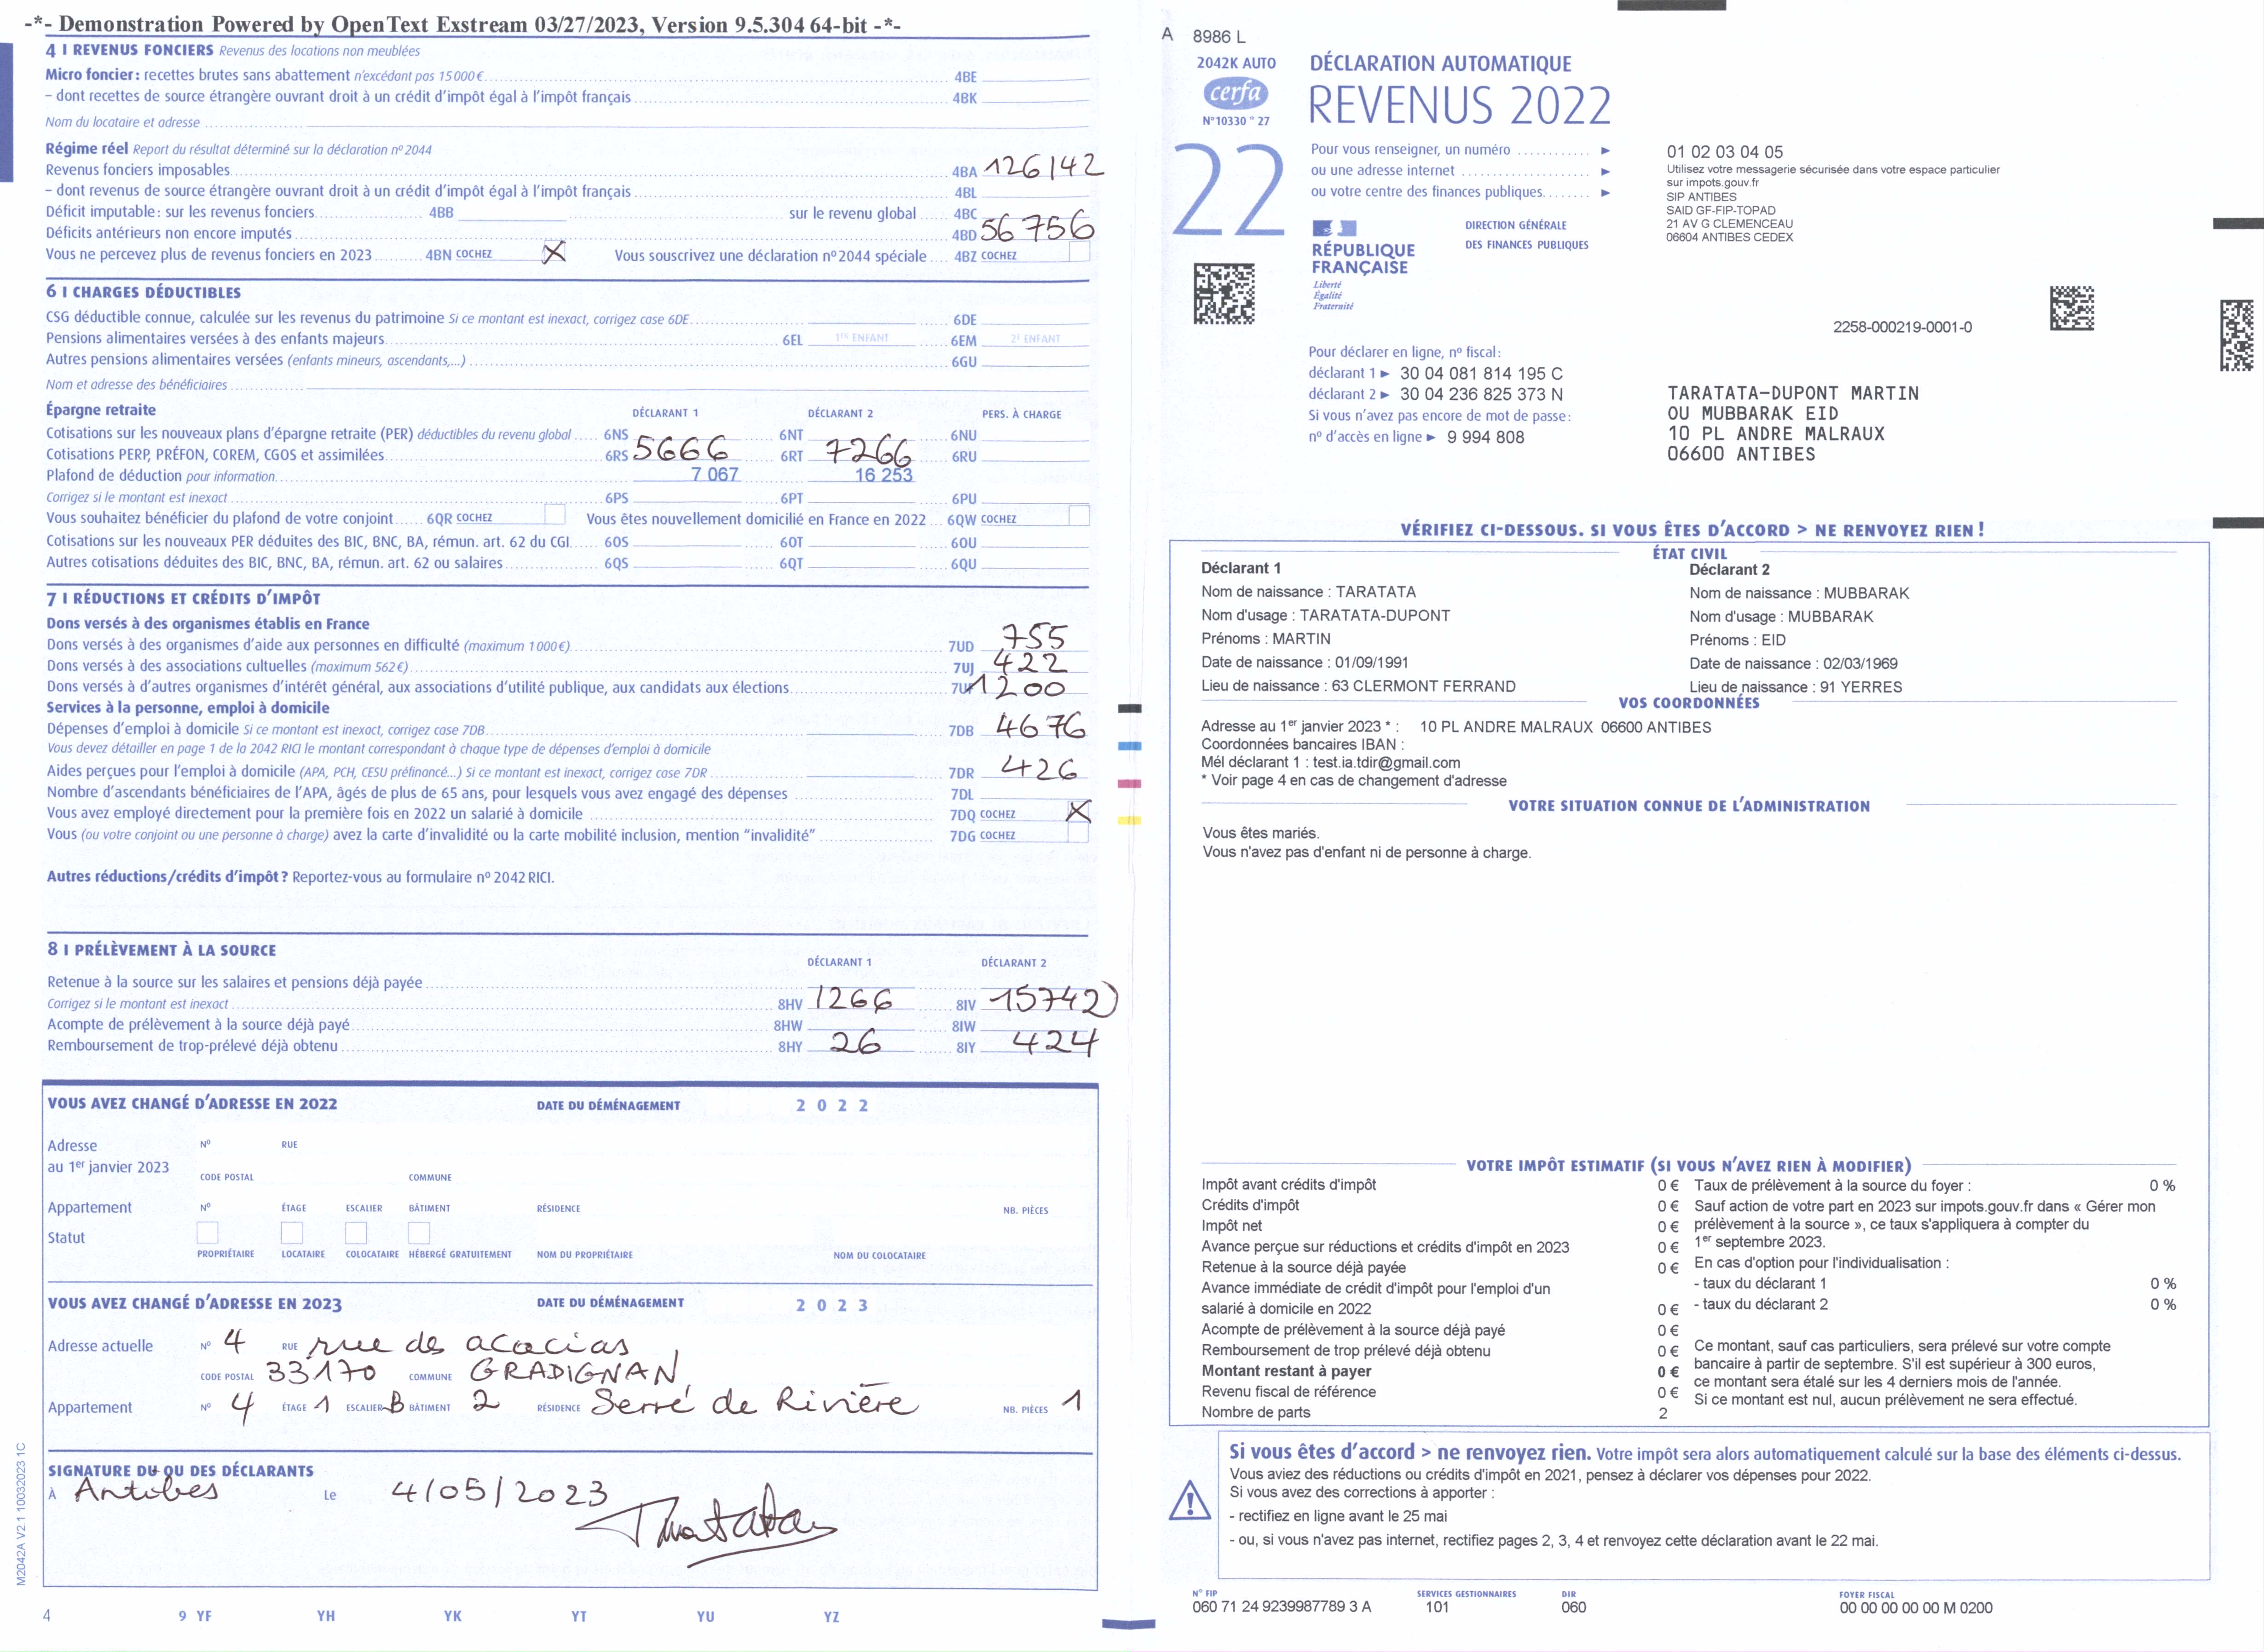 -*- Demonstration Powered by OpenText Exstream 03/27/2023, Version 9.5.304 64-bit -*-
4 I REVENUS FONCIERS Revenus des locations non meublées
Micro foncier : recettes brutes sans abattement n'excédant pas 15 000 € 4BE
– dont recettes de source étrangère ouvrant droit à un crédit d'impôt égal à l'impôt français 4BK
Nom du locataire et adresse
Régime réel Report du résultat déterminé sur la déclaration nº 2044
Revenus fonciers imposables 4BA 126142
– dont revenus de source étrangère ouvrant droit à un crédit d'impôt égal à l'impôt français 4BL
Déficit imputable : sur les revenus fonciers 4BB sur le revenu global 4BC
Déficits antérieurs non encore imputés 4BD 56756
Vous ne percevez plus de revenus fonciers en 2023 4BN COCHEZ X Vous souscrivez une déclaration nº 2044 spéciale 4BZ COCHEZ
6 I CHARGES DÉDUCTIBLES
CSG déductible connue, calculée sur les revenus du patrimoine Si ce montant est inexact, corrigez case 6DE 6DE
Pensions alimentaires versées à des enfants majeurs 6EL 1ER ENFANT 6EM 2E ENFANT
Autres pensions alimentaires versées (enfants mineurs, ascendants,...) 6GU
Nom et adresse des bénéficiaires
Épargne retraite DÉCLARANT 1 DÉCLARANT 2 PERS. À CHARGE
Cotisations sur les nouveaux plans d'épargne retraite (PER) déductibles du revenu global 6NS 6NT 6NU
Cotisations PERP, PRÉFON, COREM, CGOS et assimilées 6RS 5666 6RT 7266 6RU
Plafond de déduction pour information 7 067 16 253
Corrigez si le montant est inexact 6PS 6PT 6PU
Vous souhaitez bénéficier du plafond de votre conjoint 6QR COCHEZ Vous êtes nouvellement domicilié en France en 2022 6QW COCHEZ
Cotisations sur les nouveaux PER déduites des BIC, BNC, BA, rémun. art. 62 du CGI 6OS 6OT 6OU
Autres cotisations déduites des BIC, BNC, BA, rémun. art. 62 ou salaires 6QS 6QT 6QU
7 I RÉDUCTIONS ET CRÉDITS D'IMPÔT
Dons versés à des organismes établis en France
Dons versés à des organismes d'aide aux personnes en difficulté (maximum 1 000 €) 7UD 755
Dons versés à des associations cultuelles (maximum 562 €) 7UJ 422
Dons versés à d'autres organismes d'intérêt général, aux associations d'utilité publique, aux candidats aux élections 7UF 1200
Services à la personne, emploi à domicile
Dépenses d'emploi à domicile Si ce montant est inexact, corrigez case 7DB 7DB 4676
Vous devez détailler en page 1 de la 2042 RICI le montant correspondant à chaque type de dépenses d'emploi à domicile
Aides perçues pour l'emploi à domicile (APA, PCH, CESU préfinancé...) Si ce montant est inexact, corrigez case 7DR 7DR 426
Nombre d'ascendants bénéficiaires de l'APA, âgés de plus de 65 ans, pour lesquels vous avez engagé des dépenses 7DL
Vous avez employé directement pour la première fois en 2022 un salarié à domicile 7DQ COCHEZ X
Vous (ou votre conjoint ou une personne à charge) avez la carte d'invalidité ou la carte mobilité inclusion, mention “invalidité” 7DG COCHEZ
Autres réductions/crédits d'impôt ? Reportez-vous au formulaire nº 2042 RICI.
8 I PRÉLÈVEMENT À LA SOURCE
DÉCLARANT 1 DÉCLARANT 2
Retenue à la source sur les salaires et pensions déjà payée
Corrigez si le montant est inexact 8HV 1266 8IV 15742)
Acompte de prélèvement à la source déjà payé 8HW 8IW
Remboursement de trop-prélevé déjà obtenu 8HY 26 8IY 424
VOUS AVEZ CHANGÉ D'ADRESSE EN 2022 DATE DU DÉMÉNAGEMENT 2 0 2 2
Adresse Nº RUE
au 1er janvier 2023
CODE POSTAL COMMUNE
Appartement Nº ÉTAGE ESCALIER BÂTIMENT RÉSIDENCE NB. PIÈCES
Statut
PROPRIÉTAIRE LOCATAIRE COLOCATAIRE HÉBERGÉ GRATUITEMENT NOM DU PROPRIÉTAIRE NOM DU COLOCATAIRE
VOUS AVEZ CHANGÉ D'ADRESSE EN 2023 DATE DU DÉMÉNAGEMENT 2 0 2 3
Adresse actuelle Nº 4 RUE rue des acacias
CODE POSTAL 33170 COMMUNE GRADIGNAN
Appartement Nº 4 ÉTAGE 1 ESCALIER B BÂTIMENT 2 RÉSIDENCE Serré de Rivière NB. PIÈCES 1
SIGNATURE DU OU DES DÉCLARANTS
À Antibes Le 4/05/2023
Taratata
M2042A V2.1 10032023 1C
4 9 YF YH YK YT YU YZ
A 8986 L
2042K AUTO
cerfa
N° 10330 * 27
22
DÉCLARATION AUTOMATIQUE
REVENUS 2022
Pour vous renseigner, un numéro ► 01 02 03 04 05
ou une adresse internet ► Utilisez votre messagerie sécurisée dans votre espace particulier
sur impots.gouv.fr
ou votre centre des finances publiques ► SIP ANTIBES
SAID GF-FIP-TOPAD
21 AV G CLEMENCEAU
06604 ANTIBES CEDEX
RÉPUBLIQUE
FRANÇAISE
Liberté
Égalité
Fraternité
DIRECTION GÉNÉRALE
DES FINANCES PUBLIQUES
2258-000219-0001-0
Pour déclarer en ligne, nº fiscal :
déclarant 1 ► 30 04 081 814 195 C
déclarant 2 ► 30 04 236 825 373 N
Si vous n'avez pas encore de mot de passe :
nº d'accès en ligne ► 9 994 808
TARATATA-DUPONT MARTIN
OU MUBBARAK EID
10 PL ANDRE MALRAUX
06600 ANTIBES
VÉRIFIEZ CI-DESSOUS. SI VOUS ÊTES D'ACCORD > NE RENVOYEZ RIEN !
ÉTAT CIVIL
Déclarant 1 Déclarant 2
Nom de naissance : TARATATA Nom de naissance : MUBBARAK
Nom d'usage : TARATATA-DUPONT Nom d'usage : MUBBARAK
Prénoms : MARTIN Prénoms : EID
Date de naissance : 01/09/1991 Date de naissance : 02/03/1969
Lieu de naissance : 63 CLERMONT FERRAND Lieu de naissance : 91 YERRES
VOS COORDONNÉES
Adresse au 1er janvier 2023 * : 10 PL ANDRE MALRAUX 06600 ANTIBES
Coordonnées bancaires IBAN :
Mél déclarant 1 : test.ia.tdir@gmail.com
* Voir page 4 en cas de changement d'adresse
VOTRE SITUATION CONNUE DE L'ADMINISTRATION
Vous êtes mariés.
Vous n'avez pas d'enfant ni de personne à charge.
VOTRE IMPÔT ESTIMATIF (SI VOUS N'AVEZ RIEN À MODIFIER)
Impôt avant crédits d'impôt 0 €
Crédits d'impôt 0 €
Impôt net 0 €
Avance perçue sur réductions et crédits d'impôt en 2023 0 €
Retenue à la source déjà payée 0 €
Avance immédiate de crédit d'impôt pour l'emploi d'un
salarié à domicile en 2022 0 €
Acompte de prélèvement à la source déjà payé 0 €
Remboursement de trop prélevé déjà obtenu 0 €
Montant restant à payer 0 €
Revenu fiscal de référence 0 €
Nombre de parts 2
Taux de prélèvement à la source du foyer : 0 %
Sauf action de votre part en 2023 sur impots.gouv.fr dans « Gérer mon
prélèvement à la source », ce taux s'appliquera à compter du
1er septembre 2023.
En cas d'option pour l'individualisation :
- taux du déclarant 1 0 %
- taux du déclarant 2 0 %
Ce montant, sauf cas particuliers, sera prélevé sur votre compte
bancaire à partir de septembre. S'il est supérieur à 300 euros,
ce montant sera étalé sur les 4 derniers mois de l'année.
Si ce montant est nul, aucun prélèvement ne sera effectué.
Si vous êtes d'accord > ne renvoyez rien. Votre impôt sera alors automatiquement calculé sur la base des éléments ci-dessus.
Vous aviez des réductions ou crédits d'impôt en 2021, pensez à déclarer vos dépenses pour 2022.
Si vous avez des corrections à apporter :
- rectifiez en ligne avant le 25 mai
- ou, si vous n'avez pas internet, rectifiez pages 2, 3, 4 et renvoyez cette déclaration avant le 22 mai.
N° FIP SERVICES GESTIONNAIRES DIR FOYER FISCAL
060 71 24 9239987789 3 A 101 060 00 00 00 00 00 M 0200